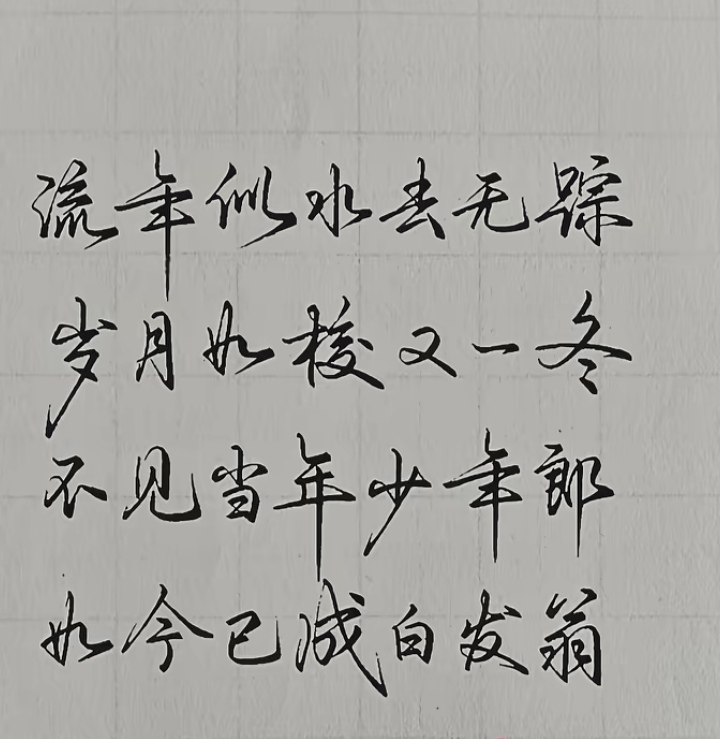 流年似水去无踪
岁月如梭又一冬
不见当年少年郎
如今已成白发翁